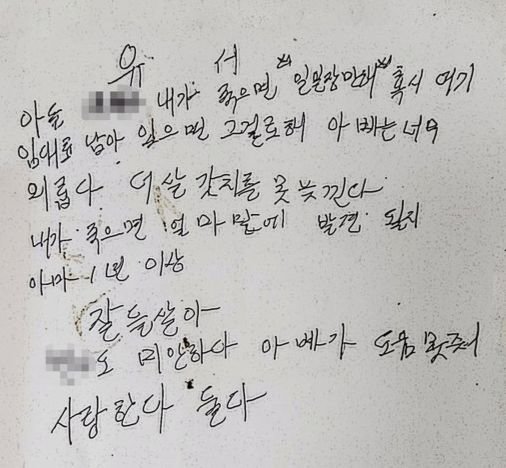 유 서
아들 내가 죽으면 "일본장만해" 혹시 여기
임대료 남아 있으면 그걸로해 아빠는 너무
외롭다 더살 갓치를 못늣낀다
내가 죽으면 얼마만에 발견 될지
아마 1년 이상
잘 들살아
도 미안하다 아빠가 도움못줘서
사랑한다 둘다